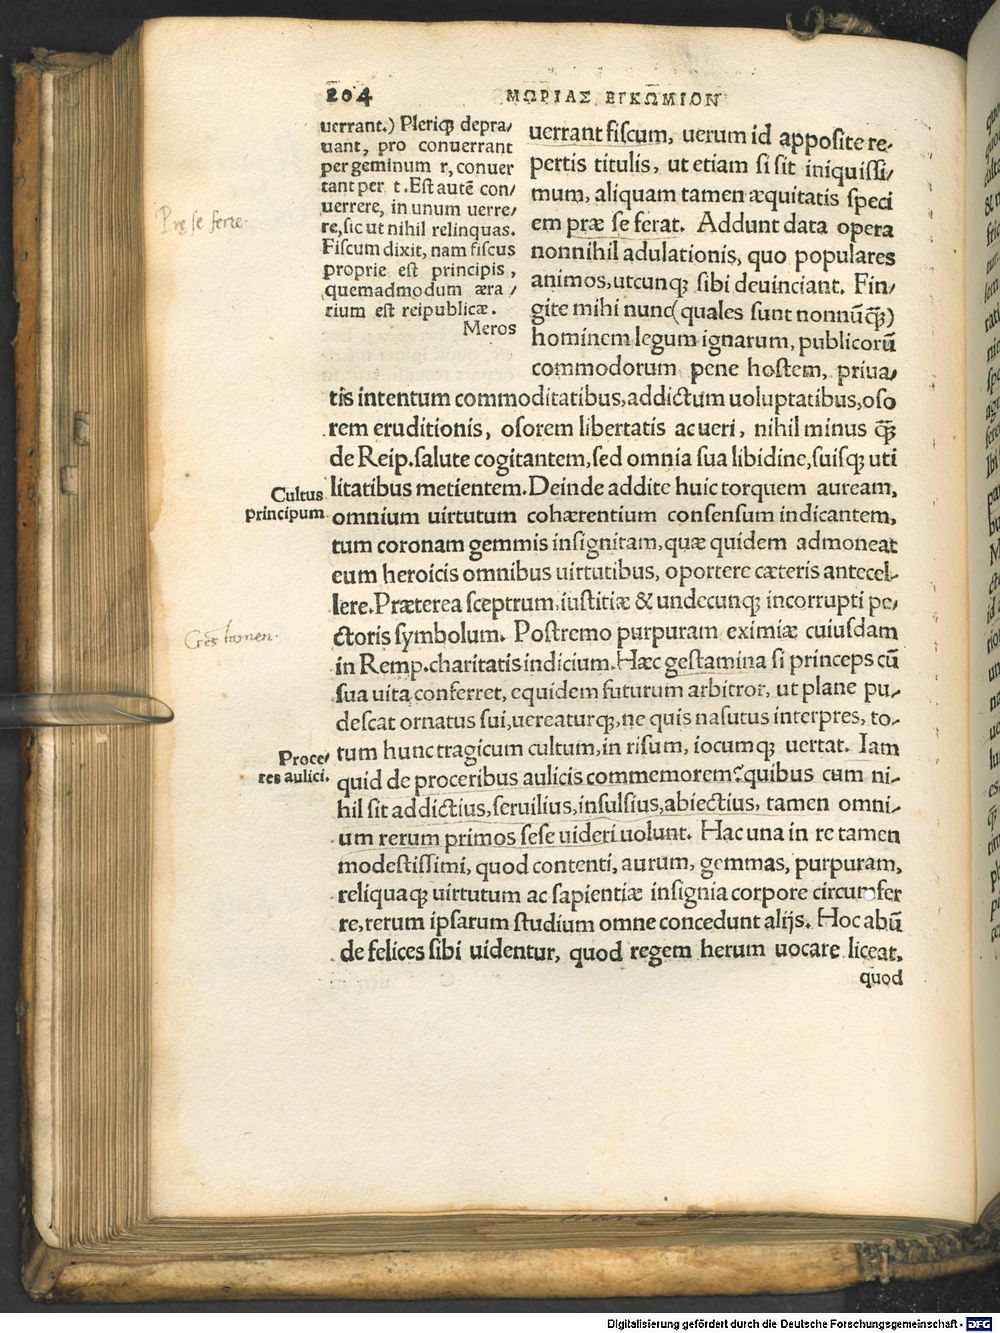 204
ΜΩΡΙΑΣ ΕΓΚΩΜΙΟΝ
uerrant.) Pleriqꝫ depra/
uant, pro conuerrant
per geminum r, conuer
tant per t. Est autē con/
uerrere, in unum uerre/
re, sic ut nihil relinquas.
Fiscum dixit, nam fiscus
proprie est principis,
quemadmodum æra/
rium est reipublicæ.
Meros
uerrant fiscum, uerum id apposite re-
pertis titulis, ut etiam si sit iniquissi/
mum, aliquam tamen æquitatis speci
em præ se ferat. Addunt data opera
nonnihil adulationis, quo populares
animos, utcunqꝫ sibi deuinciant. Fin/
gite mihi nunc (quales sunt nonnūqꝫ̄)
hominem legum ignarum, publicorū
commodorum pene hostem, priua/
tis intentum commoditatibus, addictum uoluptatibus, oso
rem eruditionis, osorem libertatis ac ueri, nihil minus qꝫ̄
de Reip. salute cogitantem, sed omnia sua libidine, suisqꝫ uti
litatibus metientem. Deinde addite huic torquem auream,
omnium uirtutum cohærentium consensum indicantem,
tum coronam gemmis insignitam, quæ quidem admoneat
eum heroicis omnibus uirtutibus, oportere cæteris antecel-
lere. Præterea sceptrum, iustitiæ & undecunqꝫ incorrupti pe/
ctoris symbolum. Postremo purpuram eximiæ cuiusdam
in Remp. charitatis indicium. Hæc gestamina si princeps cū
sua uita conferret, equidem futurum arbitror, ut plane pu-
descat ornatus sui, uereaturqꝫ, ne quis nasutus interpres, to-
tum hunc tragicum cultum, in risum, iocumqꝫ uertat. Iam
quid de proceribus aulicis commemorem? quibus cum ni-
hil sit addictius, seruilius, insulsius, abiectius, tamen omni-
um rerum primos sese uideri uolunt. Hac una in re tamen
modestissimi, quod contenti, aurum, gemmas, purpuram,
reliquaqꝫ uirtutum ac sapientiæ insignia corpore circumfer
re, rerum ipsarum studium omne concedunt alijs. Hoc abū
de felices sibi uidentur, quod regem herum uocare liceat,
quod
Pre se ferre.
Cultus
principum
Gestamen.
Proce/
res aulici.
Digitalisierung gefördert durch die Deutsche Forschungsgemeinschaft - DFG